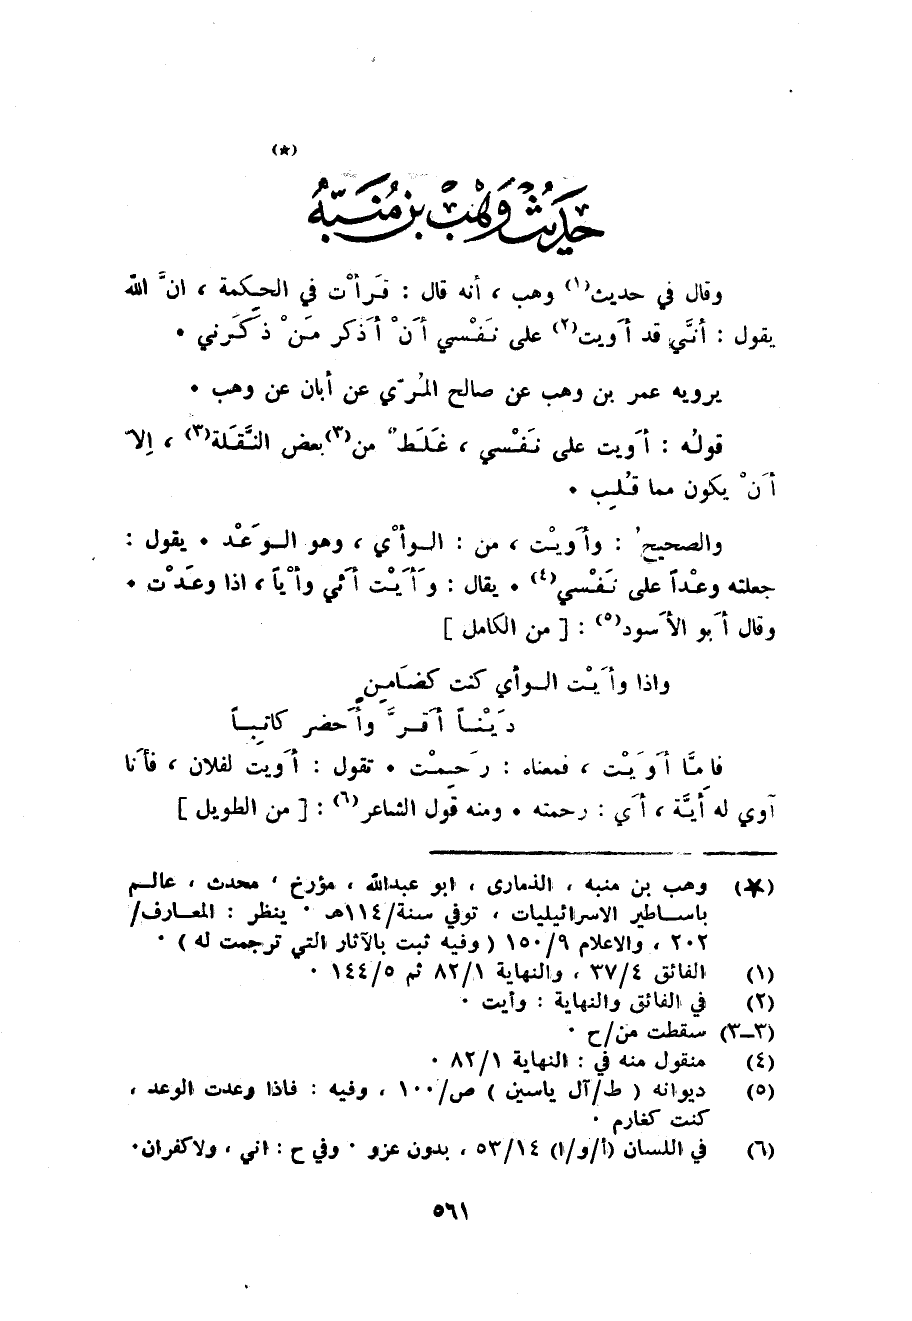 (★)
حَديثُ وَهْب بن مُنَبّه
وقال في حديث(١) وهب ، أنه قال : قَرأْت في الحِكمة ، انَّ الله
يقول : أنّي قد أَويت(٢) على نَفْسي أَنْ أَذكر مَنْ ذكَرني .
يرويه عمر بن وهب عن صالح المُرّي عن أبان عن وهب .
قولُه : أَويت على نَفْسي ، غَلَط من(٣) بعض النَّقَلة(٣) ، إلاّ
أَنْ يكون مما قُلِب .
والصحيحُ : وأَويْت ، من : الوأْي ، وهو الوَعْد . يقول :
جعلته وعْداً على نَفْسي(٤) . يقال : وَأَيْت أَئي وأْياً ، اذا وعَدْت .
وقال أَبو الأَسود(٥) : [ من الكامل ]
واذا وأَيْت الوأي كنت كضَامِنٍ
دَيْناً أَقرَّ وأَحضر كاتِباً
فاِمَّا أَوَيْت ، فمعناه : رَحِمْت . تقول : أَويت لفلان ، فأَنا
آوي له أَيَّة ، أَي : رحمته . ومنه قول الشاعر(٦) : [ من الطويل ]
(★) وهب بن منبه ، الذمارى ، ابو عبدالله ، مؤرخ ، محدث ، عالم
باساطير الاسرائيليات ، توفي سنة/١١٤هـ . ينظر : المعارف/
٢٠٢ ، والاعلام ١٥٠/٩ ( وفيه ثبت بالآثار التي ترجمت له ) .
(١) الفائق ٣٧/٤ ، والنهاية ٨٢/١ ثم ١٤٤/٥ .
(٢) في الفائق والنهاية : وأيت .
(٣-٣) سقطت من/ح .
(٤) منقول منه في : النهاية ٨٢/١ .
(٥) ديوانه ( ط/آل ياسين ) ص/١٠٠ ، وفيه : فاذا وعدت الوعد ،
كنت كغارم .
(٦) في اللسان (أ/و/ا) ٥٣/١٤ ، بدون عزو . وفي ح : اني ، ولاكفران .
٥٦١